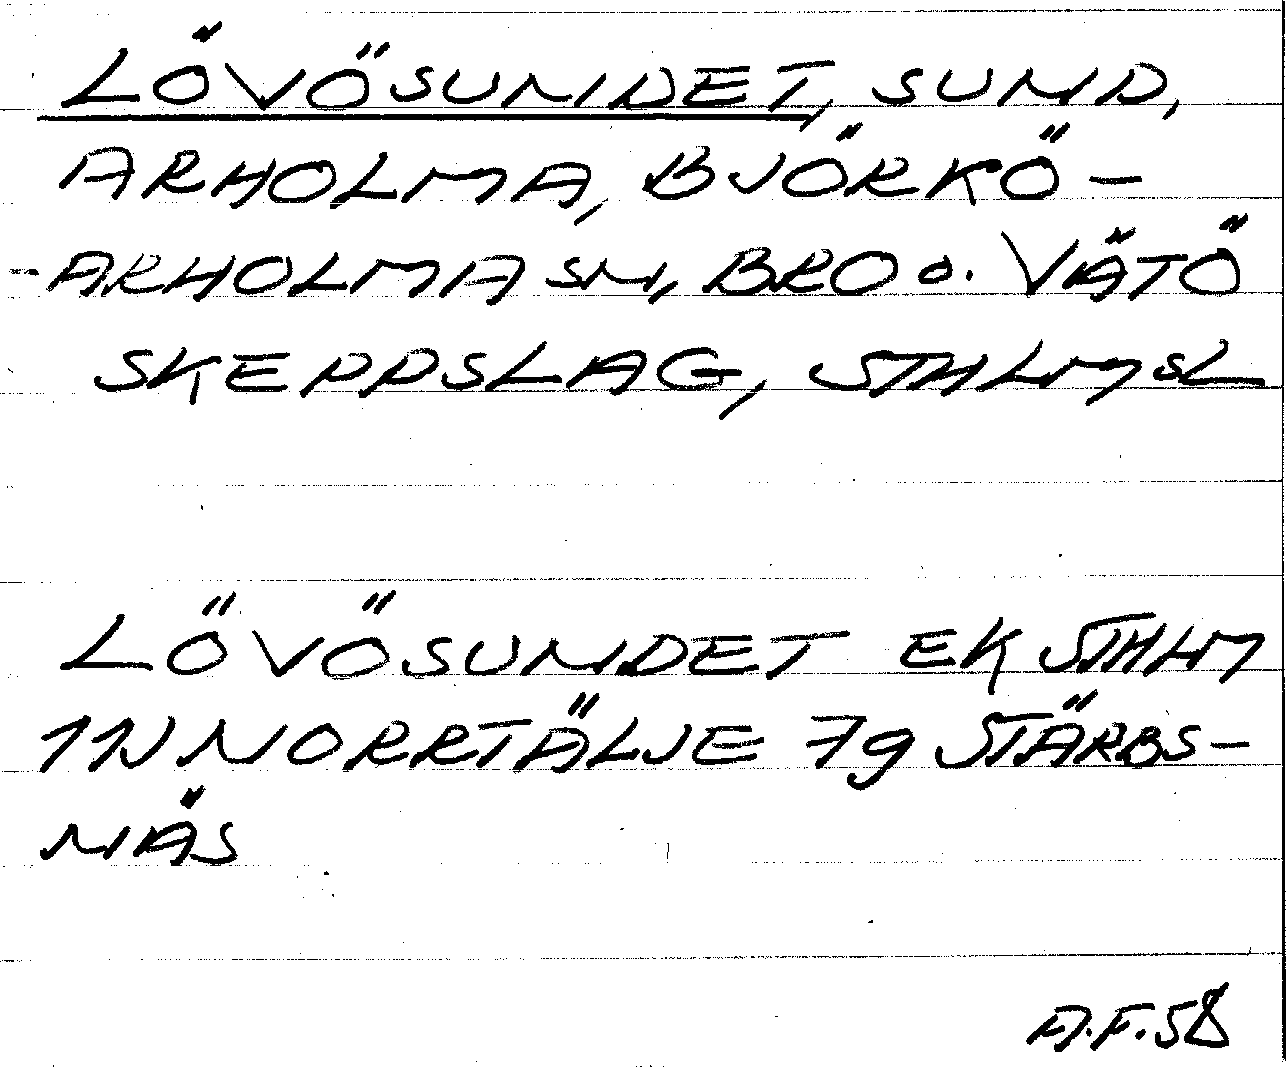 LÖVÖSUNDET, SUND,
ARHOLMA, BJÖRKÖ-
-ARHOLMA SN, BRO O. VÄTÖ
SKEPPSLAG, STHLMSL
LÖVÖSUNDET EK STHLM
11N NORRTÄLJE 79 STÄRBS-
NÄS
A.F. 58